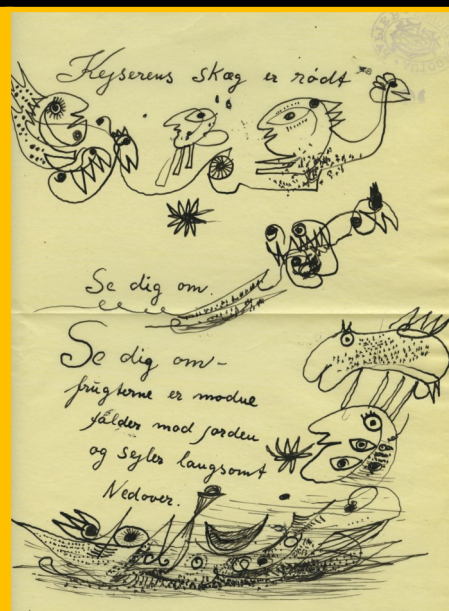 Kejserens skæg er rødt
Se dig om.
Se dig om-
frugterne er modne
falder mod jorden
og sejler langsomt
Nedover.